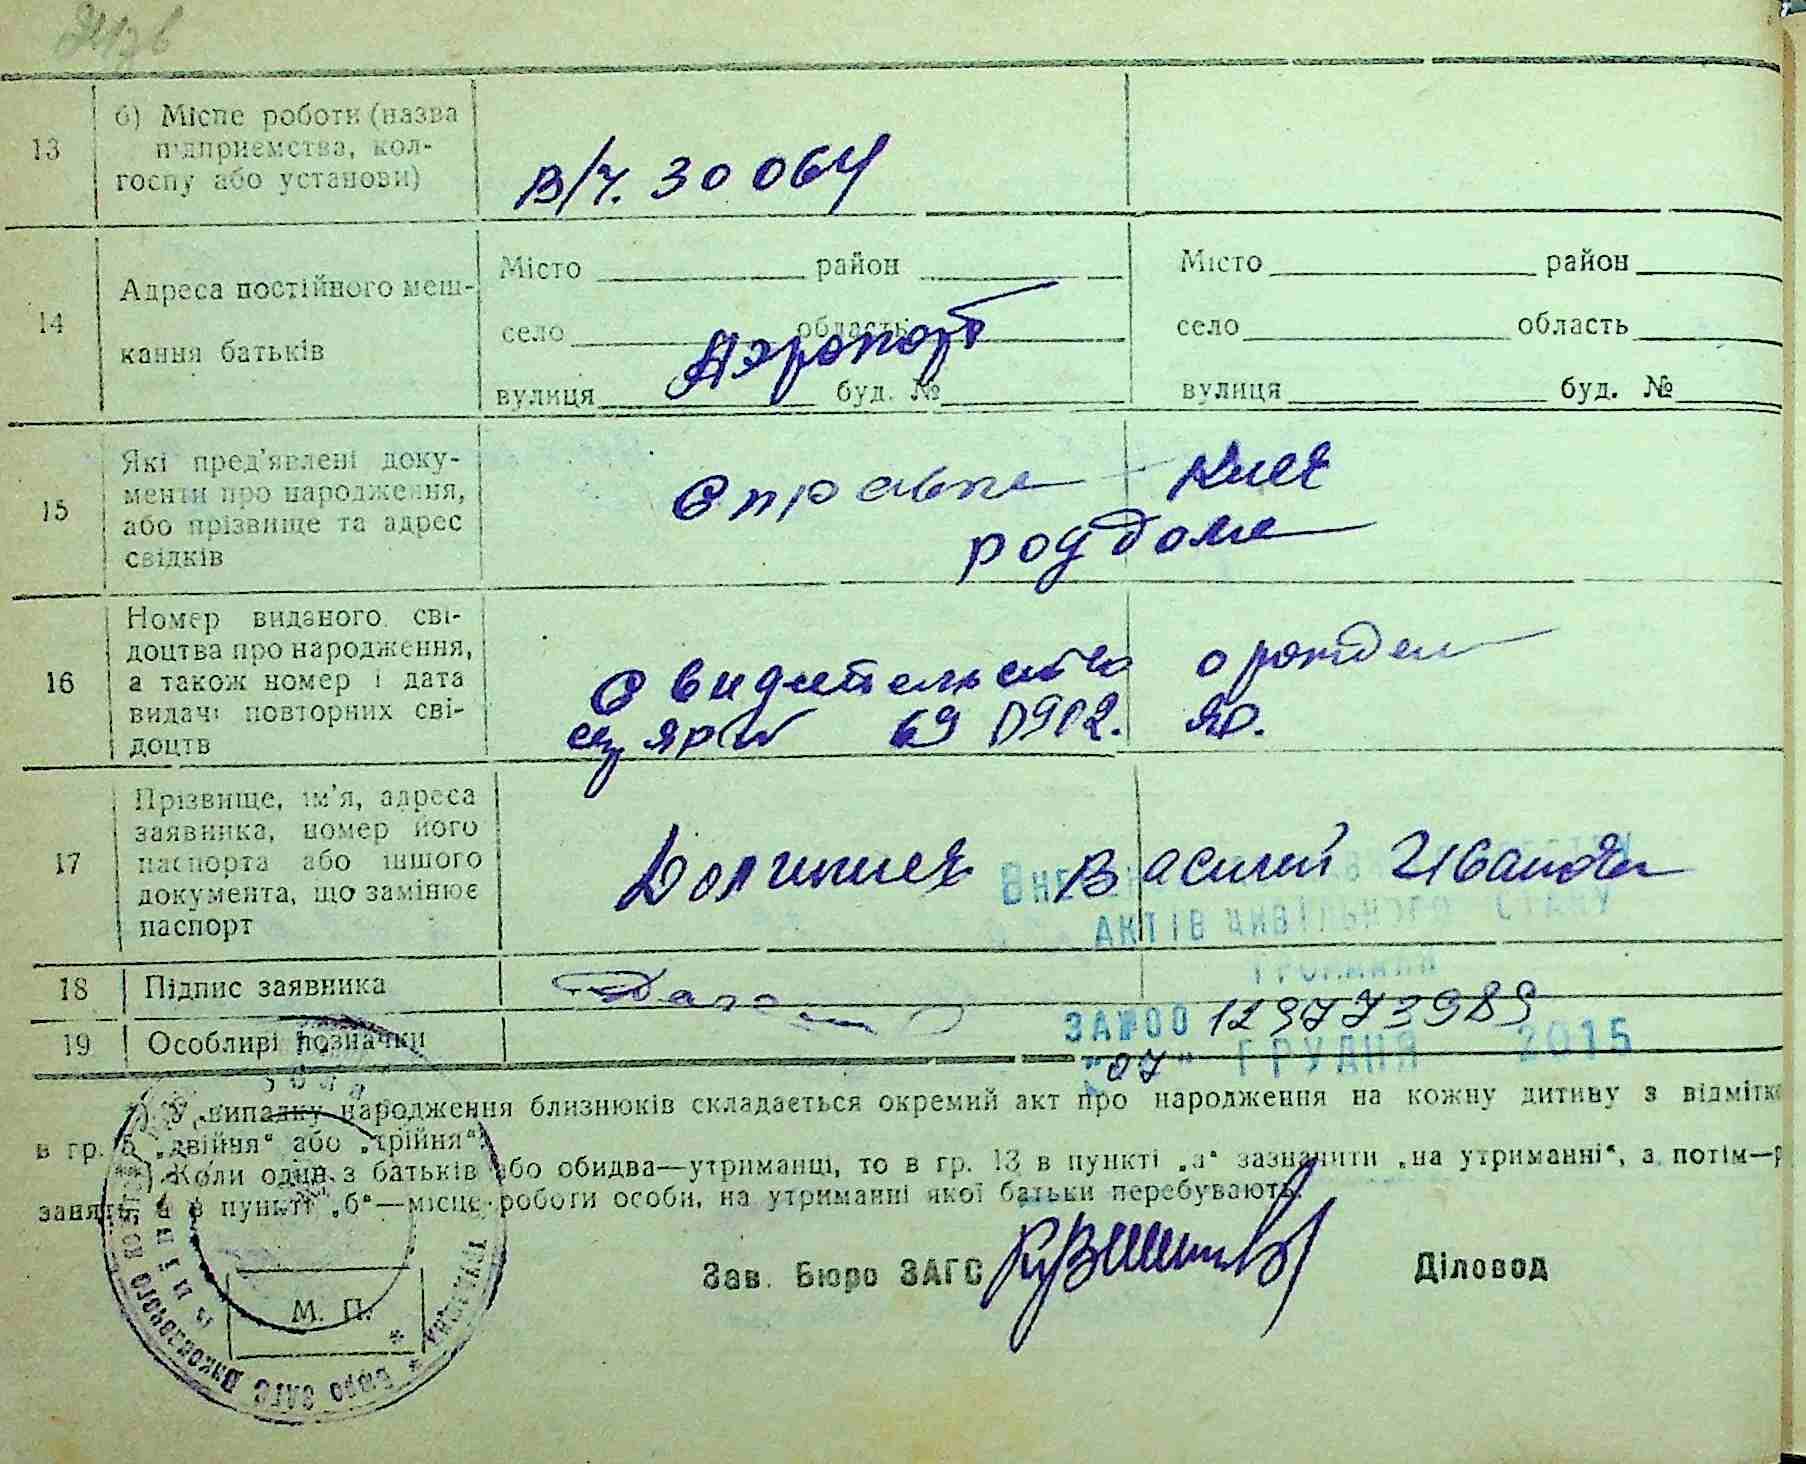 13
б) Місце роботи (назва
підприємства, кол-
госпу або установи)
В/Ч. 30064
14
Адреса постійного меш-
кання батьків
Місто район
село область
вулиця буд. №
Аэропорт
Місто район
село область
вулиця буд. №
15
Які пред'явлені доку-
менти про народження,
або прізвище та адрес
свідків
Справка Киев
роддома
16
Номер виданого сві-
доцтва про народження,
а також номер і дата
видачі повторних сві-
доцтв
Свидетельство о рожден
69 0902. 
17
Прізвище, ім'я, адреса
заявника, номер його
паспорта або іншого
документа, що замінює
паспорт
Василий Иванович
АКТІВ ЦИВІЛЬНОГО СТАНУ
ГРОМАДЯН
18
Підпис заявника
ЗА №00 129773989
19
Особливі позначки
"07" ГРУДНЯ 2015
У випадку народження близнюків складається окремий акт про народження на кожну дитину з відмітко
в гр. 5 „двійня“ або „трійня“.
Коли один з батьків або обидва—утриманці, то в гр. 13 в пункті „а“ зазначити „на утриманні“, а потім—р
занять, а в пункті „б“—місце роботи особи, на утриманні якої батьки перебувають.
Зав. Бюро ЗАГС
Діловод
М. П.
Бюро ЗАГС Виконавчого